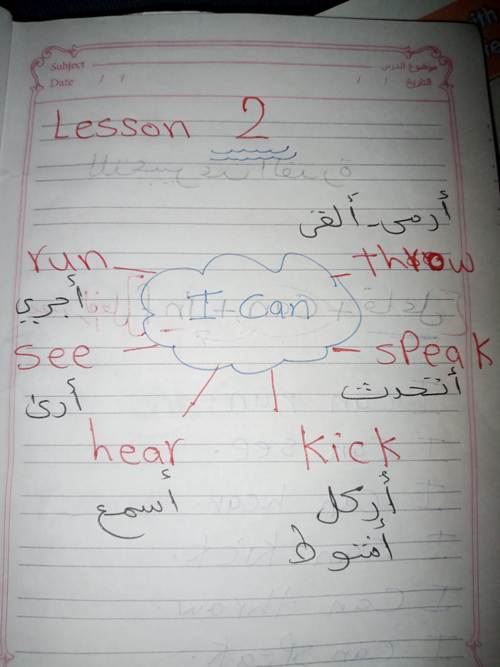 Subject موضوع الدرس
Date / / / / التاريخ
Lesson 2
أرمى - ألقى
run throw
I can
أجري
see speak
أرى أتحدث
hear kick
أسمع أركل
أشوط